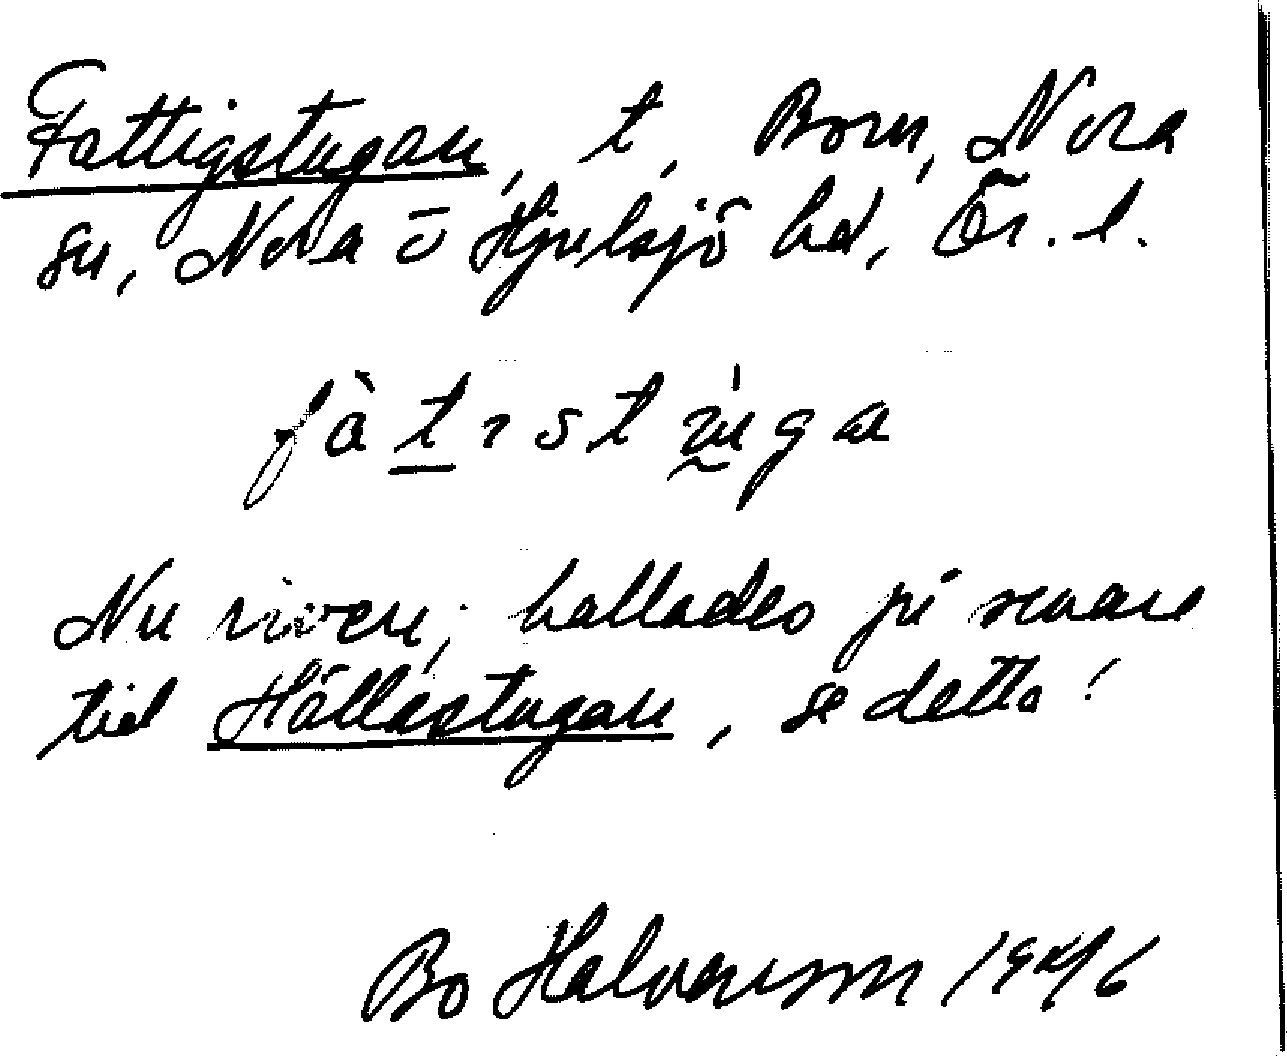 Fattigstugan, t. Born, Nora
sn, Nora o Hjulsjö hd, Ör. l.
fàtistúga
Nu riven; kallades på senare
tid Hållastugan, se detta!
Bo Halvarsson 1946